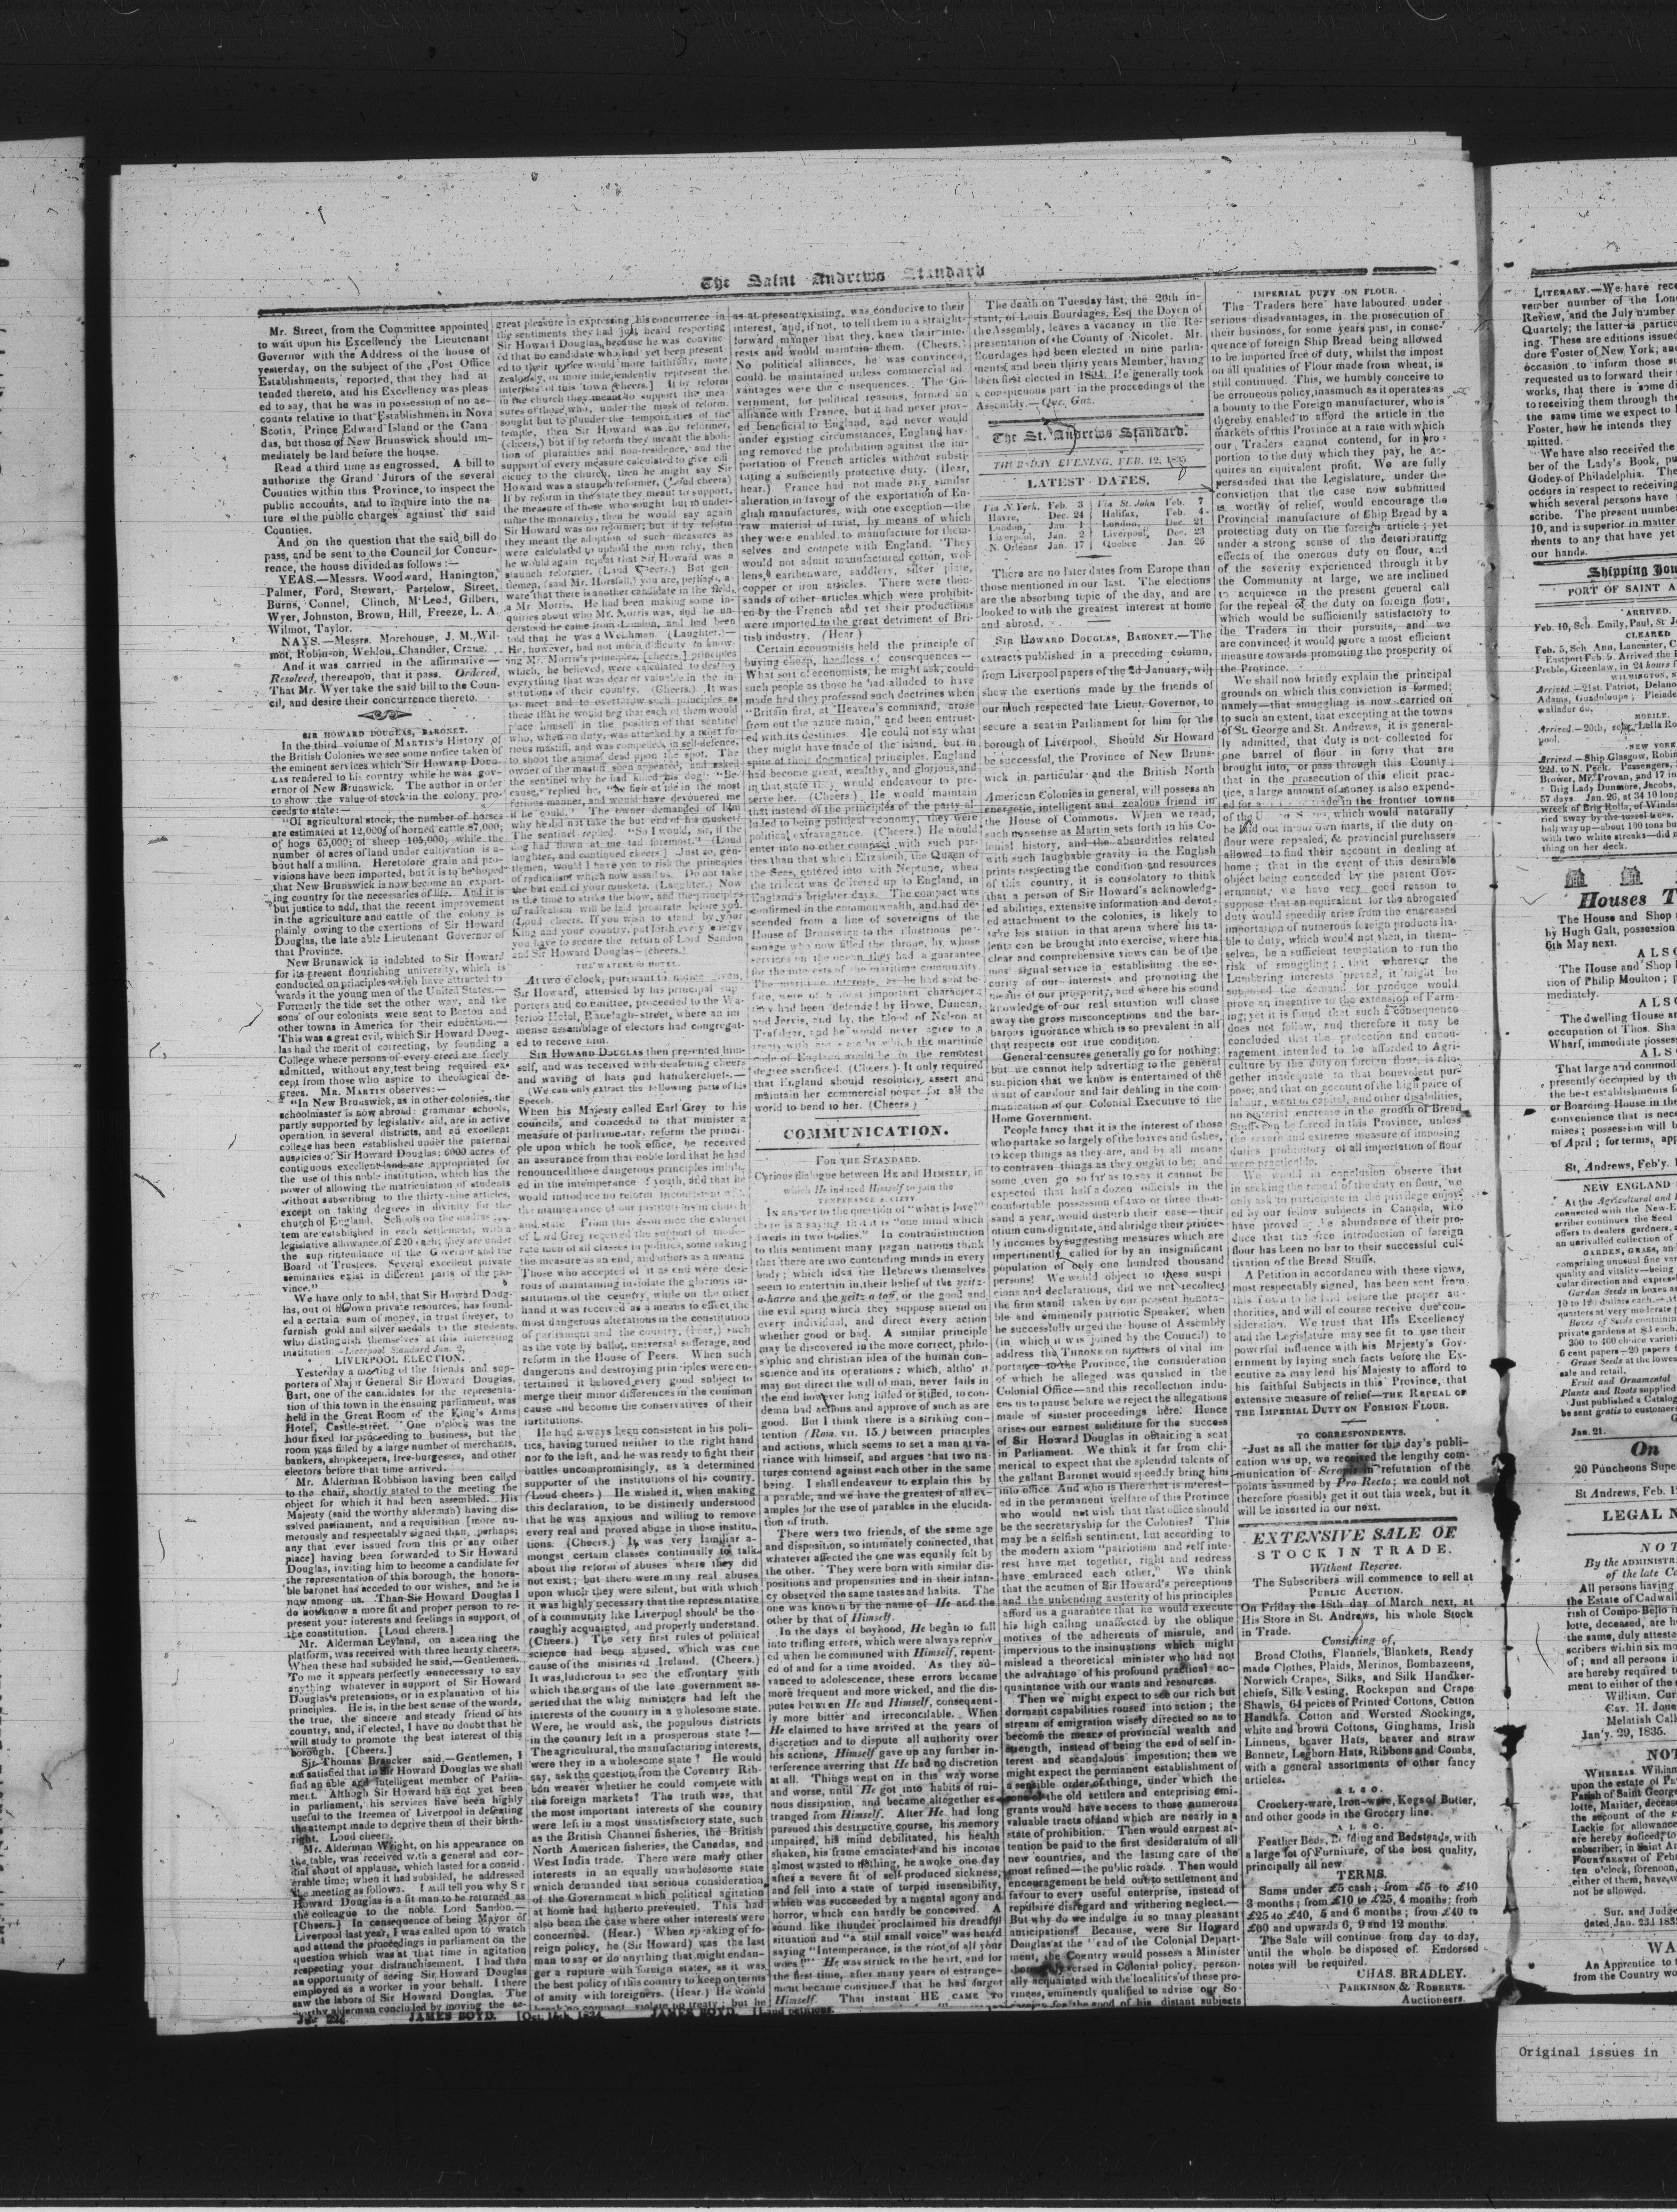 The Saint Andrews Standard
Mr. Street, from the Committee appointed
to wait upon his Excellency the Lieutenant
Governor with the Address of the house of
yesterday, on the subject of the Post Office
Establishments, reported, that they had at
tended thereto, and his Excellency was pleas
ed to say, that he was in possession of no ac-
counts relative to that Establishment in Nova
Scotia, Prince Edward Island or the Cana
das, but those of New Brunswick should im-
mediately be laid before the house.
Read a third time as engrossed. A bill to
authorize the Grand Jurors of the several
Counties within this Province, to inspect the
public accounts, and to inquire into the na-
ture of the public charges against the said
Counties.
And on the question that the said bill do
pass, and be sent to the Council for Concur-
rence, the house divided as follows :—
YEAS.—Messrs. Woodward, Hanington,
Palmer, Ford, Stewart, Partelow, Street,
Burns, Connel, Clinch, M'Leod, Gilbert,
Wyer, Johnston, Brown, Hill, Freeze, L. A.
Wilmot, Taylor.
NAYS.—Messrs. Morehouse, J. M. Wil-
mot, Robinson, Weldon, Chandler, Crane.
And it was carried in the affirmative—
Resolved, thereupon, that it pass. Ordered,
That Mr. Wyer take the said bill to the Coun-
cil, and desire their concurrence thereto.
SIR HOWARD DOUGLAS, BARONET.
In the third volume of MARTIN's History of
the British Colonies we see some notice taken of
the eminent services which Sir Howard Doug-
las rendered to his country while he was gov-
ernor of New Brunswick. The author in order
to show the value of stock in the colony, pro-
ceeds to state:—
"Of agricultural stock, the number of horses
are estimated at 12,000; of horned cattle 87,000;
of hogs 65,000; of sheep 105,000; while the
number of acres of land under cultivation is a-
bout half a million. Heretofore grain and pro-
visions have been imported, but it is to be hoped
that New Brunswick is now become an export-
ing country for the necessaries of life. And it is
but justice to add, that the recent improvement
in the agriculture and cattle of the colony is
plainly owing to the exertions of Sir Howard
Douglas, the late able Lieutenant Governor of
that Province.
New Brunswick is indebted to Sir Howard
for its present flourishing university, which is
conducted on principles which have attracted to-
wards it the young men of the United States.—
Formerly the tide set the other way, and the
sons of our colonists were sent to Boston and
other towns in America for their education.—
This was a great evil, which Sir Howard Doug-
las had the merit of correcting, by founding a
College where persons of every creed are freely
admitted, without any test being required ex-
cept from those who aspire to theological de-
grees. MR. MARTIN observes:—
"In New Brunswick, as in other colonies, the
schoolmaster is now abroad: grammar schools,
partly supported by legislative aid, are in active
operation, in several districts, and an excellent
college has been established under the paternal
auspicies of Sir Howard Douglas; 6000 acres of
contiguous excellent land are appropriated for
the use of this noble institution, which has the
power of allowing the matriculation of students
without subscribing to the thirty-nine articles,
except on taking degrees in divinity for the
church of England. Schools on the madras sys-
tem are established in each settlement, with a
legislative allowance of £20 each; they are under
the sup rintendance of the Governor and the
Board of Trustees. Several excellent private
seminaries exist in different parts of the pro-
vince."
We have only to add, that Sir Howard Doug-
las, out of his own private resources, has found-
ed a certain sum of money, in trust forever, to
furnish gold and silver medals to the students
who distinguish themselves at this interesting
institution.—Liverpool Standard Jan. 2,
LIVERPOOL ELECTION.
Yesterday a meeting of the friends and sup-
porters of Major General Sir Howard Douglas,
Bart, one of the candidates for the representa-
tion of this town in the ensuing parliament, was
held in the Great Room of the King's Arms
Hotel, Castle-street. One o'clock was the
hour fixed for proceeding to business, but the
room was filled by a large number of merchants,
bankers, shopkeepers, free-burgesses, and other
electors before that time arrived.
Mr. Alderman Robbison having been called
to the chair, shortly stated to the meeting the
object for which it had been assembled. His
Majesty (said the worthy alderman) having dis-
solved parliament, and a requisition [more nu-
merously and respectably signed than, perhaps,
any that ever issued from this or any other
place] having been forwarded to Sir Howard
Douglas, inviting him to become a candidate for
the representation of this borough, the honora-
ble baronet has acceded to our wishes, and he is
now among us. Than Sir Howard Douglas I
do not know a more fit and proper person to re-
present your interests and feelings in support, of
the constitution. [Loud cheers.]
Mr. Alderman Leyland, on ascending the
platform, was received with three hearty cheers.
When these had subsided he said,—Gentlemen.
To me it appears perfectly unnecessary to say
anything whatever in support of Sir Howard
Douglas's pretensions, or in explanation of his
principles. He is, in the best sense of the words,
the true, the sincere and steady friend of his
country, and, if elected, I have no doubt that he
will study to promote the best interest of this
borough. [Cheers.]
Sir Thomas Brancker said,—Gentlemen, I
am satisfied that in Sir Howard Douglas we shall
find an able and intelligent member of Parlia-
ment. Althogh Sir Howard has not yet been
in parliament, his services have been highly
useful to the freemen of Liverpool in defeating
the attempt made to deprive them of their birth-
right. Loud cheers.
Mr. Alderman Wright, on his appearance on
the table, was received with a general and cor-
dial shout of applause, which lasted for a consid-
erable time; when it had subsided, he addressed
the meeting as follows. I will tell you why Sir
Howard Douglas is a fit man to be returned as
the colleague to the noble Lord Sandon.—
[Cheers.] In consequence of being Mayor of
Liverpool last year, I was called upon to watch
and attend the proceedings in parliament on the
question which was at that time in agitation
respecting your disfranchisement. I had then
an opportunity of seeing Sir Howard Douglas
employed as a worker in your behalf. I there
saw the labors of Sir Howard Douglas. The
worthy alderman concluded by moving the se-
great pleasure in expressing his concurrence in
the sentiments they had just heard respecting
Sir Howard Douglas, because he was convinc-
ed that no candidate who had yet been present
ed to their notice would more faithfully, more
zealously, or more independently represent the
interests of this town [cheers.] If by reform
in the church they meant to support the mea-
sures of those who, under the mask of reform,
sought but to plunder the temporalities of the
temple, then Sir Howard was no reformer,
(cheers,) but if by reform they meant the aboli-
tion of pluralities and non-residence, and the
support of every measure calculated to give effi-
ciency to the church, then he might say Sir
Howard was a staunch reformer, (Loud cheers)
If by reform in the state they meant to support,
the measure of those who sought but to under-
mine the monarchy, then he would say again
Sir Howard was no reformer; but if by reform
they meant the adoption of such measures as
were calculated to uphold the mon rchy, then
he would again repeat that Sir Howard was a
staunch reformer. (Loud Cheers.) But gen-
tlemen, (said Mr. Horsfall,) you are, perhaps, a-
ware that there is another candidate in the field,
a Mr. Morris. He had been making some in-
quiries about who Mr. Morris was, and he un-
derstood he came from London, and had been
told that he was a Welchman. (Laughter.)—
He, however, had not much difficulty in know-
ing Mr. Morris's principles, [cheers,] principles
which, he believed, were calculated to destroy
everything that was dear or valuable in the in-
stitutions of their country. (Cheers.) It was
to meet and to overthrow such principles as
these that he would beg that each of them would
place himself in the position of that sentinel
who, when on duty, was attacked by a most fu-
rious mastiff, and was compelled, in self-defence,
to shoot the animal dead upon the spot. The
owner of the mastiff soon appeared, and asked
the sentinel why he had killed his dog? "Be-
cause," replied he, "he flew at me in the most
ferious manner, and would have devoured me
if he could." The owner demanded of him
why he did not take the but end of his musket?
The sentinel replied. "So I would, sir, if the
dog had flown at me tail foremost." (Loud
laughter, and continued cheers] Just so, gen-
tlemen, would I have you to risk the principles
of radicalism which now assail us. Do not take
the but end of your muskets. (Laughter.) Now
is the time to strike the blow, and the principles
of radicalism will be laid prostrate before you.
(Loud cheers. If you wish to stand by your
King and your country, put forth every energy
you have to secure the return of Lord Sandon
and Sir Howard Douglas—(cheers.)
THE WATERLOO HOTEL.
At two o'clock, pursuant to notice given,
Sir Howard, attended by his principal sup-
porters and committee, proceeded to the Wa-
terloo Hotel, Ranelagh-street, where an im-
mense assemblage of electors had congregat-
ed to receive him.
SIR HOWARD DOUGLAS then presented him-
self, and was received with deafening cheers
and waving of hats and handkerchiefs.—
(We can only extract the following parts of his
Speech.
When his Majesty called Earl Grey to his
councils, and conceded to that minister a
measure of parliamentary reform the princi-
ple upon which he took office, he received
an assurance from that noble lord that he had
renounced those dangerous principles imbib-
ed in the intemperance of youth, and that he
would introduce no reform inconsistent with
the maintenance of our institutions in church
and state From this assurance the cabinet
of Lord Grey received the support of mode-
rate men of all classes in politics, some taking
the measure as an end, and others as a means.
Those who accepted of it as end were desi-
rous of maintaining inviolate the glorious in-
stitutions of the country, while on the other
hand it was received as a means to effect the
most dangerous alterations in the constitution
of parliament and the country, (hear,) such
as the vote by ballot, universal sufferage, and
reform in the House of Peers. When such
dangerous and destroying principles were en-
tertained it behoved every good subject to
merge their minor differences in the common
cause and become the conservatives of their
institutions.
He had always been consistent in his poli-
tics, having turned neither to the right hand
nor to the left, and he was ready to fight their
battles uncompromisingly, as a determined
supporter of the institutions of his country.
(Loud cheers.) He wished it, when making
this declaration, to be distinctly understood
that he was anxious and willing to remove
every real and proved abuse in those institu-
tions. (Cheers.) It was very familiar a-
mongst certain classes continually to talk
about the reform of abuses where they did
not exist; but there were many real abuses
upon which they were silent, but with which
it was highly necessary that the representative
of a community like Liverpool should be tho-
roughly acquainted, and properly understand.
(Cheers.) The very first rules of political
science had been abused, which was one
cause of the miseries of Ireland. (Cheers.)
It was ludicrous to see the effrontary with
which the organs of the late government as-
serted that the whig ministers had left the
interests of the country in a wholesome state.
Were, he would ask, the populous districts
in the country left in a prosperous state?—
The agricultural, the manufacturing interests,
were they in a wholesome state? He would
say, ask the question from the Coventry Rib-
bon weaver whether he could compete with
the foreign markets? The truth was, that
the most important interests of the country
were left in a most unsatisfactory state, such
as the British Channel fisheries, the British
North American fisheries, the Canadas, and
West India trade. There were many other
interests in an equally unwholesome state
which demanded that serious consideration
of the Government which political agitation
at home had hitherto prevented. This had
also been the case where other interests were
concerned. (Hear.) When speaking of fo-
reign policy, he (Sir Howard) was the last
man to say or do anything that might endan-
ger a rupture with foreign states, as it was
the best policy of this country to keep on terms
of amity with foreigners. (Hear.) He would
break no compact, violate no treaty; but he
as at present existing, was conducive to their
interest, and, if not, to tell them in a straight-
forward manner that they knew their inte-
rests and would maintain them. (Cheers.)
No political alliances, he was convinced,
could be maintained unless commercial ad-
vantages were the consequences. The Go-
vernment, for political reasons, formed an
alliance with France, but it had never prov-
ed beneficial to England, and never would
under existing circumstances, England hav-
ing removed the prohibition against the im-
portation of French articles without substi-
tuting a sufficiently protective duty. (Hear,
hear.) France had not made any similar
alteration in favour of the exportation of En-
glish manufactures, with one exception—the
raw material of twist, by means of which
they were enabled to manufacture for them-
selves and compete with England. They
would not admit manufactured cotton, wol-
lens, earthenware, saddlery, silver plate,
copper or iron articles. There were thou-
sands of other articles which were prohibit-
ed by the French and yet their productions
were imported to the great detriment of Bri-
tish industry. (Hear)
Certain economists held the principle of
buying cheap, heedless of consequences—
What sort of economists, he might ask, could
such people as those he had alluded to have
made had they professed such doctrines when
"Britain first, at Heaven's command, arose
from out the azure main," and been entrust-
ed with its destinies. He could not say what
they might have made of the island, but in
spite of their dogmatical principles, England
had become great, wealthy, and glorious, and
in that state they would endeavour to pre-
serve her. (Cheers.) He would maintain
that instead of the principles of the party al-
luded to being political economy, they were
political extravagance. (Cheers.) He would
enter into no other compact with such par-
ties than that which Elizabeth, the Queen of
the Seas, entered into with Neptune, when
the trident was delivered up to England, in
England's brighter days. The compact was
confirmed in the commonwealth, and had de-
scended from a line of sovereigns of the
House of Brunswick to the illustrious per-
sonage who now filled the throne, by whose
services on the ocean they had a guarantee
for the interests of the maritime community.
The maritime interests, as he had said be-
fore, were of a most important character;
they had been defended by Howe, Duncan,
and Jervis, and by the blood of Nelson at
Trafalgar, and he would never agree to a
treaty with any by which the maritime
code of England would be in the remotest
degree sacrificed. (Cheers.) It only required
that England should resolutely assert and
maintain her commercial power for all the
world to bend to her. (Cheers)
COMMUNICATION.
FOR THE STANDARD.
Curious dialogue between HE and HIMSELF, in
which He induced Himself to join the
TEMPERANCE SOCIETY
In answer to the question of "what is love?"
there is a saying that it is "one mind which
dwells in two bodies." In contradistinction
to this sentiment many pagan nations think
that there are two contending minds in every
body; which idea the Hebrews themselves
seem to entertain in their belief of the yeitz-
a-harro and the yeitz a toff, or the good and
the evil spirit which they suppose attend on
every individual, and direct every action
whether good or bad. A similar principle
may be discovered in the more correct, philo-
sophic and christian idea of the human con-
science and its operations; which, altho' it
may not direct the will of man, never fails in
the end however long lulled or stifled, to con-
demn bad actions and approve of such as are
good. But I think there is a striking con-
tention (Rom. vii. 15.) between principles
and actions, which seems to set a man at va-
riance with himself, and argues that two na-
tures contend against each other in the same
being. I shall endeavor to explain this by
a parable, and we have the greatest of all ex-
amples for the use of parables in the elucida-
tion of truth.
There were two friends, of the same age
and disposition, so intimately connected, that
whatever affected the one was equally felt by
the other. They were born with similar dis-
positions and propensities and in their infan-
cy observed the same tastes and habits. The
one was known by the name of He and the
other by that of Himself.
In the days of boyhood, He began to fall
into trifling errors, which were always reprov-
ed when he communed with Himself, repent-
ed of and for a time avoided. As they ad-
vanced to adolescence, these errors became
more frequent and more wicked, and the dis-
putes between He and Himself, consequent-
ly more bitter and irreconcilable. When
He claimed to have arrived at the years of
discretion and to dispute all authority over
his actions, Himself gave up any further in-
terference averring that He had no discretion
at all. Things went on in this way worse
and worse, until He got into habits of rui-
nous dissipation, and became altogether es-
tranged from Himself. After He had long
pursued this destructive course, his memory
impaired, his mind debilitated, his health
shaken, his frame emaciated and his income
almost wasted to nothing, he awoke one day
after a severe fit of self-produced sickness,
and fell into a state of torpid insensibility,
which was succeeded by a mental agony and
horror, which can hardly be conceived. A
sound like thunder proclaimed his dreadful
situation and "a still small voice" was heard
saying "Intemperance, is the root of all your
woes!" He was struck to the heart, and for
the first time, after many years of estrange-
ment became convinced that he had forgot
Himself. That instant HE CAME TO
The death on Tuesday last, the 20th in-
stant, of Louis Bourdages, Esq the Doyen of
the Assembly, leaves a vacancy in the Re-
presentation of the County of Nicolet. Mr.
Bourdages had been elected in nine parlia-
ments, and been thirty years Member, having
been first elected in 1804. He generally took
a conspicuous part in the proceedings of the
Assembly.—Que. Gaz.
The St. Andrews Standard.
THURSDAY EVENING, FEB. 12, 1835
LATEST DATES.
Via N. York. Feb. 3 Via St. John Feb. 7
Havre, Dec. 24 Halifax, Feb. 4
London, Jan. 1 London, Dec. 21
Liverpool, Jan. 2 Liverpool, Dec. 23
N. Orleans Jan. 17 Quebec Jan. 26
There are no later dates from Europe than
those mentioned in our last. The elections
are the absorbing topic of the day, and are
looked to with the greatest interest at home
and abroad.
SIR HOWARD DOUGLAS, BARONET.—The
extracts published in a preceding column,
from Liverpool papers of the 2d January, will
shew the exertions made by the friends of
our much respected late Lieut. Governor, to
secure a seat in Parliament for him for the
borough of Liverpool. Should Sir Howard
be successful, the Province of New Bruns-
wick in particular and the British North
American Colonies in general, will possess an
energetic, intelligent and zealous friend in
the House of Commons. When we read,
such nonsense as Martin sets forth in his Co-
lonial history, and the absurdities related
with such laughable gravity in the English
prints respecting the condition and resources
of this country, it is consolatory to think
that a person of Sir Howard's acknowledg-
ed abilities, extensive information and devot-
ed attachment to the colonies, is likely to
take his station in that arena where his ta-
lents can be brought into exercise, where his
clear and comprehensive views can be of the
most signal service in establishing the se-
curity of our interests and promoting the
means of our prosperity, and where his sound
knowledge of our real situation will chase
away the gross misconceptions and the bar-
barous ignorance which is so prevalent in all
that respects our true condition.
General censures generally go for nothing;
but we cannot help adverting to the general
suspicion that we know is entertained of the
want of candour and fair dealing in the com-
munication of our Colonial Executive to the
Home Government.
People fancy that it is the interest of those
who partake so largely of the loaves and fishes,
to keep things as they are, and by all means
to contraven things as they ought to be; and
some even go so far as to say it cannot be
expected that half a dozen officials in the
comfortable possession of two or three thou-
sand a year, would disturb their ease—their
otium cum dignitate, and abridge their prince-
ly incomes by suggesting measures which are
impertinently called for by an insignificant
population of only one hundred thousand
persons! We would object to these suspi
cions and declarations, did we not recollect
the firm stand taken by our present honora-
ble and eminently patriotic Speaker, when
he successfully urged the house of Assembly
(in which it was joined by the Council) to
address the THRONE on matters of vital im-
portance to the Province, the consideration
of which he alleged was quashed in the
Colonial Office—and this recollection indu-
ces us to pause before we reject the allegations
made of sinister proceedings here. Hence
arises our earnest solicitude for the success
of Sir Howard Douglas in obtaining a seat
in Parliament. We think it far from chi-
merical to expect that the splendid talents of
the gallant Baronet would speedily bring him
into office And who is there that is interest-
ed in the permanent welfare of this Province
who would not wish that that office should
be the secretaryship for the Colonies? This
may be a selfish sentiment, but according to
the modern axiom "patriotism and self inte-
rest have met together, right and redress
have embraced each other," We think
that the acumen of Sir Howard's perceptions
and the unbending austerity of his principles
afford us a guarantee that he would execute
his high calling unaffected by the oblique
motives of the adherents of misrule, and
impervious to the insinuations which might
mislead a theoretical minister who had not
the advantage of his profound practical ac-
quaintance with our wants and resources.
Then we might expect to see our rich but
dormant capabilities roused into action; the
stream of emigration wisely directed so as to
become the means of provincial wealth and
strength, instead of being the end of self in-
terest and scandalous imposition; then we
might expect the permanent establishment of
a sensible order of things, under which the
sons of the old settlers and enterprising emi-
grants would have access to those numerous
valuable tracts of land which are nearly in a
state of prohibition. Then would earnest at-
tention be paid to the first desideratum of all
new countries, and the lasting care of the
most refined—the public roads. Then would
encouragement be held out to settlement and
favour to every useful enterprise, instead of
repulsive disregard and withering neglect.—
But why do we indulge in so many pleasant
anticipations? Because, were Sir Howard
Douglas at the head of the Colonial Depart-
ment, the Country would possess a Minister
versed in Colonial policy, person-
ally acquainted with the localities of these pro-
vinces, eminently qualified to advise our So-
for the good of his distant subjects
IMPERIAL DUTY ON FLOUR.
The Traders here have laboured under
serious disadvantages, in the prosecution of
their business, for some years past, in conse-
quence of foreign Ship Bread being allowed
to be imported free of duty, whilst the impost
on all qualities of Flour made from wheat, is
still continued. This, we humbly conceive to
be erroneous policy, inasmuch as it operates as
a bounty to the Foreign manufacturer, who is
thereby enabled to afford the article in the
markets of this Province at a rate with which
our Traders cannot contend, for in pro-
portion to the duty which they pay, he ac-
quires an equivalent profit. We are fully
persuaded that the Legislature, under the
conviction that the case now submitted
is worthy of relief, would encourage the
Provincial manufacture of Ship Bread by a
protecting duty on the foreign article; yet
under a strong sense of the deteriorating
effects of the onerous duty on flour, and
of the severity experienced through it by
the Community at large, we are inclined
to acquiesce in the present general call
for the repeal of the duty on foreign flour,
which would be sufficiently satisfactory to
the Traders in their pursuits, and we
are convinced it would prove a most efficient
measure towards promoting the prosperity of
the Province.
We shall now briefly explain the principal
grounds on which this conviction is formed;
namely—that smuggling is now carried on
to such an extent, that excepting at the towns
of St. George and St. Andrews, it is general-
ly admitted, that duty is not collected for
one barrel of flour in forty that are
brought into, or pass through this County;
that in the prosecution of this elicit prac-
tice, a large amount of money is also expend-
ed for in the frontier towns
of the which would naturally
be laid out in our own marts, if the duty on
flour were repealed, & provincial purchasers
allowed to find their account in dealing at
home; that in the event of this desirable
object being conceded by the parent Gov-
ernment, we have very good reason to
suppose that an equivalent for the abrogated
duty would speedily arise from the encreased
importation of numerous foreign products lia-
ble to duty, which would not then, in them-
selves, be a sufficient temptation to run the
risk of smuggling; that wherever the
Lumbering interests prevail, it might be
supposed the demand for produce would
prove an incentive to the extension of Farm-
ing; yet it is found that such a consequence
does not follow, and therefore it may be
concluded that the protection and encou-
ragement intended to be afforded to Agri-
culture by the duty on foreign flour, is alto-
gether inadequate to that benevolent pur-
pose; and that on account of the high price of
labour, want of capital, and other disabilities,
no material encrease in the growth of Bread
Stuffs can be forced in this Province, unless
the severe and extreme measure of imposing
duties prohibitory of all importation of flour
were practicable.
We would in conclusion observe that
in seeking the repeal of the duty on flour, we
only ask to participate in the privilege enjoy-
ed by our fellow subjects in Canada, who
have proved abundance of their pro-
duce that the free introduction of foreign
flour has been no bar to their successful cul-
tivation of the Bread Stuffs.
A Petition in accordance with these views,
most respectably signed, has been sent from
this Town to be laid before the proper au-
thorities, and will of course receive due con-
sideration. We trust that His Excellency
and the Legislature may see fit to use their
powerful influence with his Mrjesty's Gov-
ernment by laying such facts before the Ex-
ecutive as may lead his Majesty to afford to
his faithful Subjects in this Province, that
extensive measure of relief—THE REPEAL OF
THE IMPERIAL DUTY ON FOREIGN FLOUR.
TO CORRESPONDENTS.
Just as all the matter for this day's publi-
cation was up, we received the lengthy com-
munication of in refutation of the
points assumed by Pro Recto; we could not
therefore possibly get it out this week, but it
will be inserted in our next.
EXTENSIVE SALE OF
STOCK IN TRADE.
Without Reserve.
The Subscribers will commence to sell at
PUBLIC AUCTION.
On Friday the 18th day of March next, at
His Store in St. Andrews, his whole Stock
in Trade.
Consisting of,
Broad Cloths, Flannels, Blankets, Ready
made Clothes, Plaids, Merinos, Bombazeens,
Norwich Crapes, Silks, and Silk Handker-
chiefs, Silk Vesting, Rockspun and Crape
Shawls, 64 prices of Printed Cottons, Cotton
Handkfs. Cotton and Worsted Stockings,
white and brown Cottons, Ginghams, Irish
Linnens, beaver Hats, beaver and straw
Bonnets, Leghorn Hats, Ribbons and Combs,
with a general assortments of other fancy
articles.
ALSO.
Crockery-ware, Iron-ware, Kegs of Butter,
and other goods in the Grocery line.
ALSO.
Feather Beds, Bedding and Bedsteads, with
a large lot of Furniture, of the best quality,
principally all new.
TERMS.
Sums under £5 cash; from £5 to £10
3 months; from £10 to £25, 4 months; from
£25 to £40, 5 and 6 months; from £40 to
£60 and upwards 6, 9 and 12 months.
The Sale will continue from day to day,
until the whole be disposed of. Endorsed
notes will be required.
CHAS. BRADLEY.
PARKINSON & ROBERTS.
Auctioneers.
JAMES BOYD. [Oct. 15th, 1834 JAMES BOYD. [Land petitions.
LITERARY.—We have rece
vember number of the Lon
Review, and the July number
Quartely; the latter is particu
ing. These are editions issued
dore Foster of New York; and
occasion to inform those su
requested us to forward their
works, that there is some di
to receiving them through the
the same time we expect to h
Foster, how he intends they
mitted.
We have also received the
ber of the Lady's Book, pu
Godey of Philadelphia. The
occurs in respect to receiving
which several persons have
scribe. The present number
10, and is superior in matter
ments to any that have yet
our hands.
Shipping Jou
PORT OF SAINT A
ARRIVED.
Feb. 10, Sch. Emily, Paul, St J
CLEARED
Feb. 5, Sch Ann, Lancaster, C
Eastport Feb. 9. Arrived the B
Peeble, Greenlaw, in 24 hours f
WILMINGTON, N
Arrived.—21st. Patriot, Delano
Adams, Guadoloupe; Pleiade
wallader do.
MOBILE.
Arrived.—20th, schr. Lulla Ro
pool.
NEW YORK
Arrived—Ship Glasgow, Robin
22d. to N. Peck. Passengers,
Brower, Mr. Provan, and 17 in
Brig Lady Dunmore, Jacobs,
57 days. Jan. 26, at 34 10 long
wreck of Brig Rolla, of Windso
ried away by the
half way up—about 100 tons bu
with two white streaks—did n
thing on her deck.
Houses T
The House and Shop
by Hugh Galt, possession
6th May next.
ALSO
The House and Shop
tion of Philip Moulton; p
mediately.
ALSO
The dwelling House an
occupation of Thos. Sha
Wharf, immediate posses
ALSO
That large and commod
presently occupied by the
the best establishment f
or Boarding House in the
convenience that is nece
mises; possession will b
of April; for terms, app
St, Andrews, Feb'y. 1
NEW ENGLAND
At the Agricultural and
connected with the New-E
scriber continues the Seed
offers to dealers gardners, a
an unrivalled collection of
GARDEN, GRASS, and
comprising unusual fine var
quality and vitality—being
cular direction and expres
Garden Seeds in boxes as
10 to 100 dollars each.—At
quarters at very moderate
Boxes of Seeds containin
private gardens at $3 each,
300 to 400 choice varieti
6 cent papers—20 papers f
Grass Seeds at the lowes
sale and retail.
Fruit and Ornamental
Plants and Roots supplied
Just published a Catalog
be sent gratis to customers
Jan. 21.
On
20 Puncheons Supe
St Andrews, Feb. 1
LEGAL N
NOT
By the ADMINISTR
of the late Ca
All persons having
the Estate of Cadwall
rish of Compo-Bello in
lotte, deceased, are h
the same, duly atteste
scribers within six mo
of; and all persons i
are hereby required t
ment to either of the
William. Cur
Car. H. Jone
Melatiah Call
Jan'y. 29, 1835.
NOT
WHEREAS William
upon the estate of Pe
Parish of Saint George
lotte, Mariner, deceas
the account of the s
Lackie for allowance
are hereby noticed to
subscriber, in Saint A
FOURTEENTH of Febr
ten o'clock, forenoon,
either of them, have,
not be allowed.
Sur. and Judge
dated Jan. 23d 183
WA
An Apprentice to
from the Country wo
Original issues in